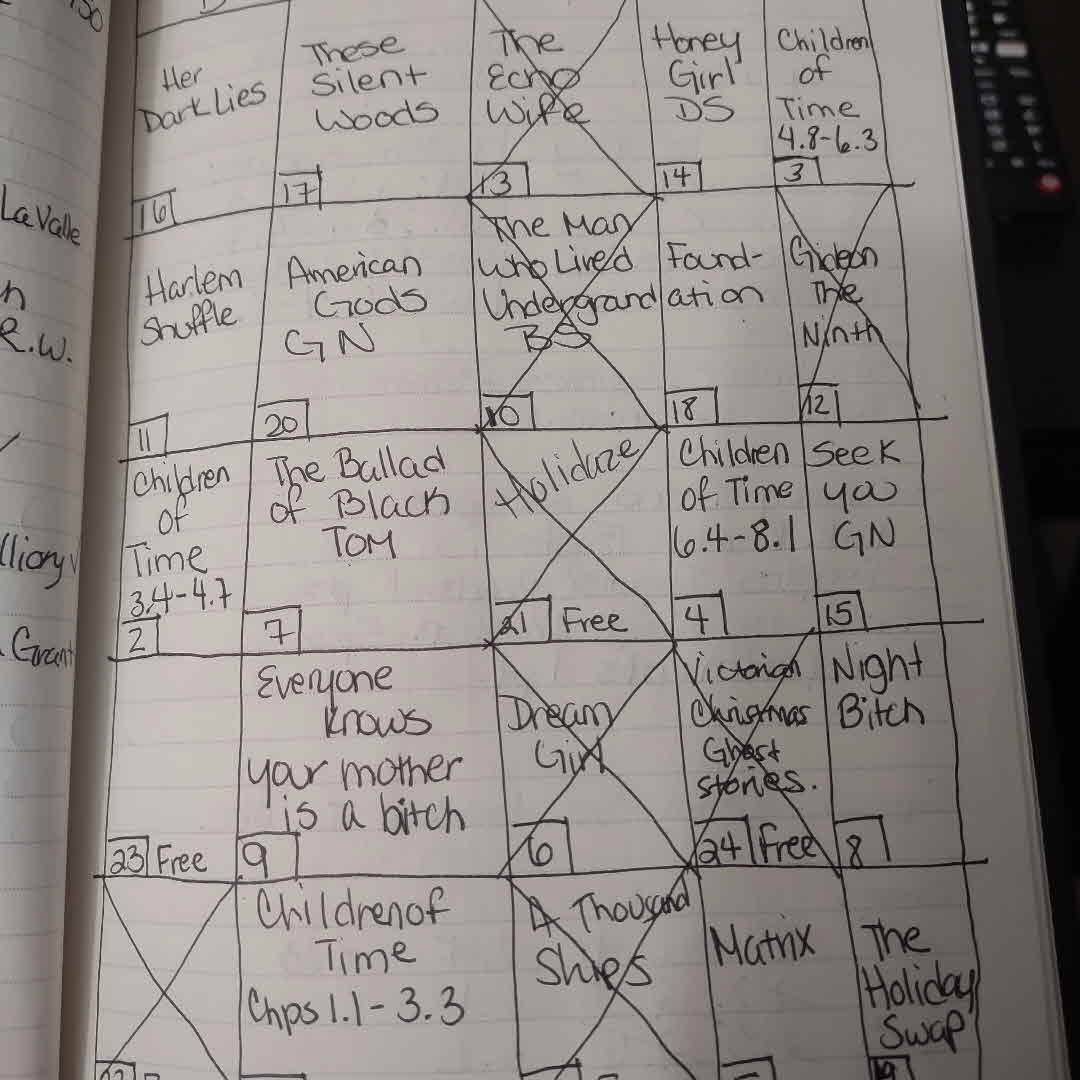 Her
Dark Lies
16
These
Silent
Woods
17
The
Echo
Wife
13
Honey
Girl
DS
14
Children
of
Time
4.8-6.3
3
LaValle
R.W.
Harlem
Shuffle
11
American
Gods
GN
20
The Man
Who Lived
Undergrand
BS
10
Found-
ation
18
Gideon
The
Ninth
12
Children
of
Time
3.4-4.7
2
The Ballad
of Black
TOM
7
Holidaze
21 Free
Children
of Time
6.4-8.1
4
Seek
you
GN
15
Grant
23 Free
Everyone
knows
your mother
is a bitch
9
Dream
Girl
6
Victorian
Christmas
Ghost
stories.
24 Free
Night
Bitch
8
Children of
Time
Chps 1.1-3.3
A Thousand
Ships
Matrix
The
Holiday
Swap
19